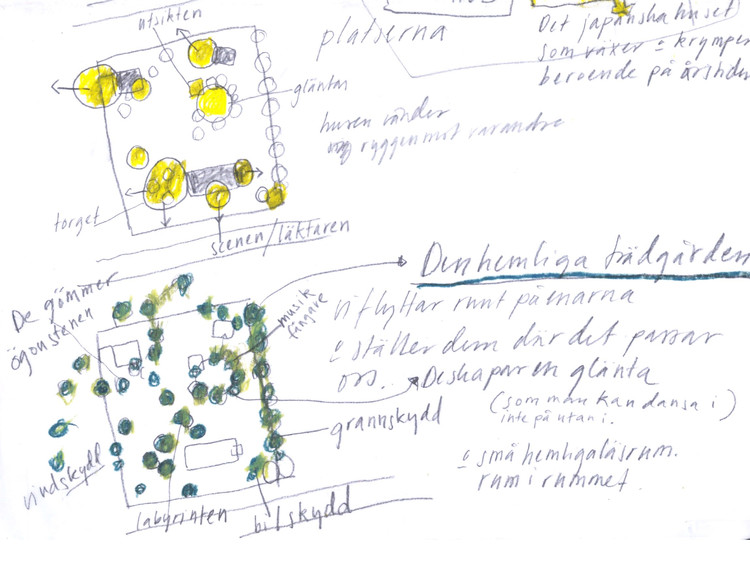 utsikten
platserna
Det japanska huset
som växer o krymper
beroende på årstiden
gläntan
husen vänder
ryggen mot varandra
torget
scenen/läktaren
De gömmer
ögonstenen
musik
fångare
Den hemliga trädgården
vi flyttar runt på enarna
o ställer dem där det passar
oss. De skapar en glänta
(som man kan dansa i)
inte på utan i.
grannskydd
o små hemliga läsrum.
rum i rummet.
vindskydd
labyrinten
bilskydd